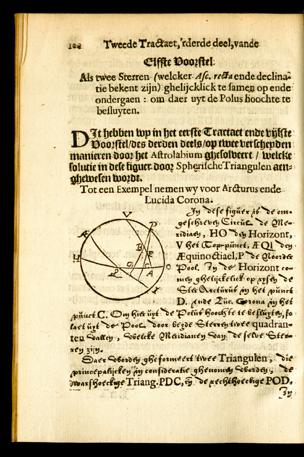 102 Tweede Tractaet, 'tderde deel, vande
Elffte Voorstel.
Als twee Sterren (welcker Asc. recta ende declina-
tie bekent zijn) ghelijcklick te samen op ende
ondergaen: om daer uyt de Polus hoochte te
besluyten.
DIt hebben wy in het eerste Tractaet ende vijfste
Voorstel/des derden deels/op twee verscheyden
manieren door het Astrolabium ghesolveert/welcke
solutie in dese figuer door Spherische Triangulen aen-
ghewesen wordt.
Tot een Exempel nemen wy voor Arcturus ende
Lucida Corona.
In dese figuer is de om-
geschreven Circul de Me-
ridiaen, HO den Horizont,
V het Top-punct, ÆQ den
Æquinoctiael, P de Noorder
Pool. In de Horizont co-
men ghelijckelick op
de Sterre Arcturus in het punct
D. ende Luc. Corona in het
punct C. Om hier uyt de Polus hoochte te besluyten, so
laet uyt de Pool door beyde Sterren twee quadran-
ten dalen, welcke Meridianen van de selve Ster-
ren zijn.
Daer worden gheformeert twee Triangulen, die
principalijcken in consideratie ghenomen worden, de
Triang. PDC, de rechthoeckige POD.
In
V
P
H
O
Q
A